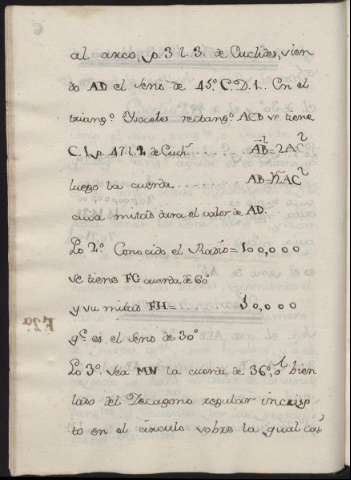 al arco, p. 3 l. 3. de Euclides, vien
do AD el seno de 45.º C.D.1. En el
triang.º Ysoceles rectang.º ACB se tiene
C.1. p. 47 l. 1. de Eucl. ........ AB²=2AC²
luego la cuerda ........ AB=√2AC²
cuia mitad dara el valor de AD.
Lo 2.º Conocido el Radio=100,000
se tiene FG cuerda de 60º
y su mitad FH= ........ 50,000
q.e es el seno de 30º
Lo 3.º sea MN la cuerda de 36º, ó bien
lado del Decagono regular inscrip
to en el circulo sobre la qual
F.2ª